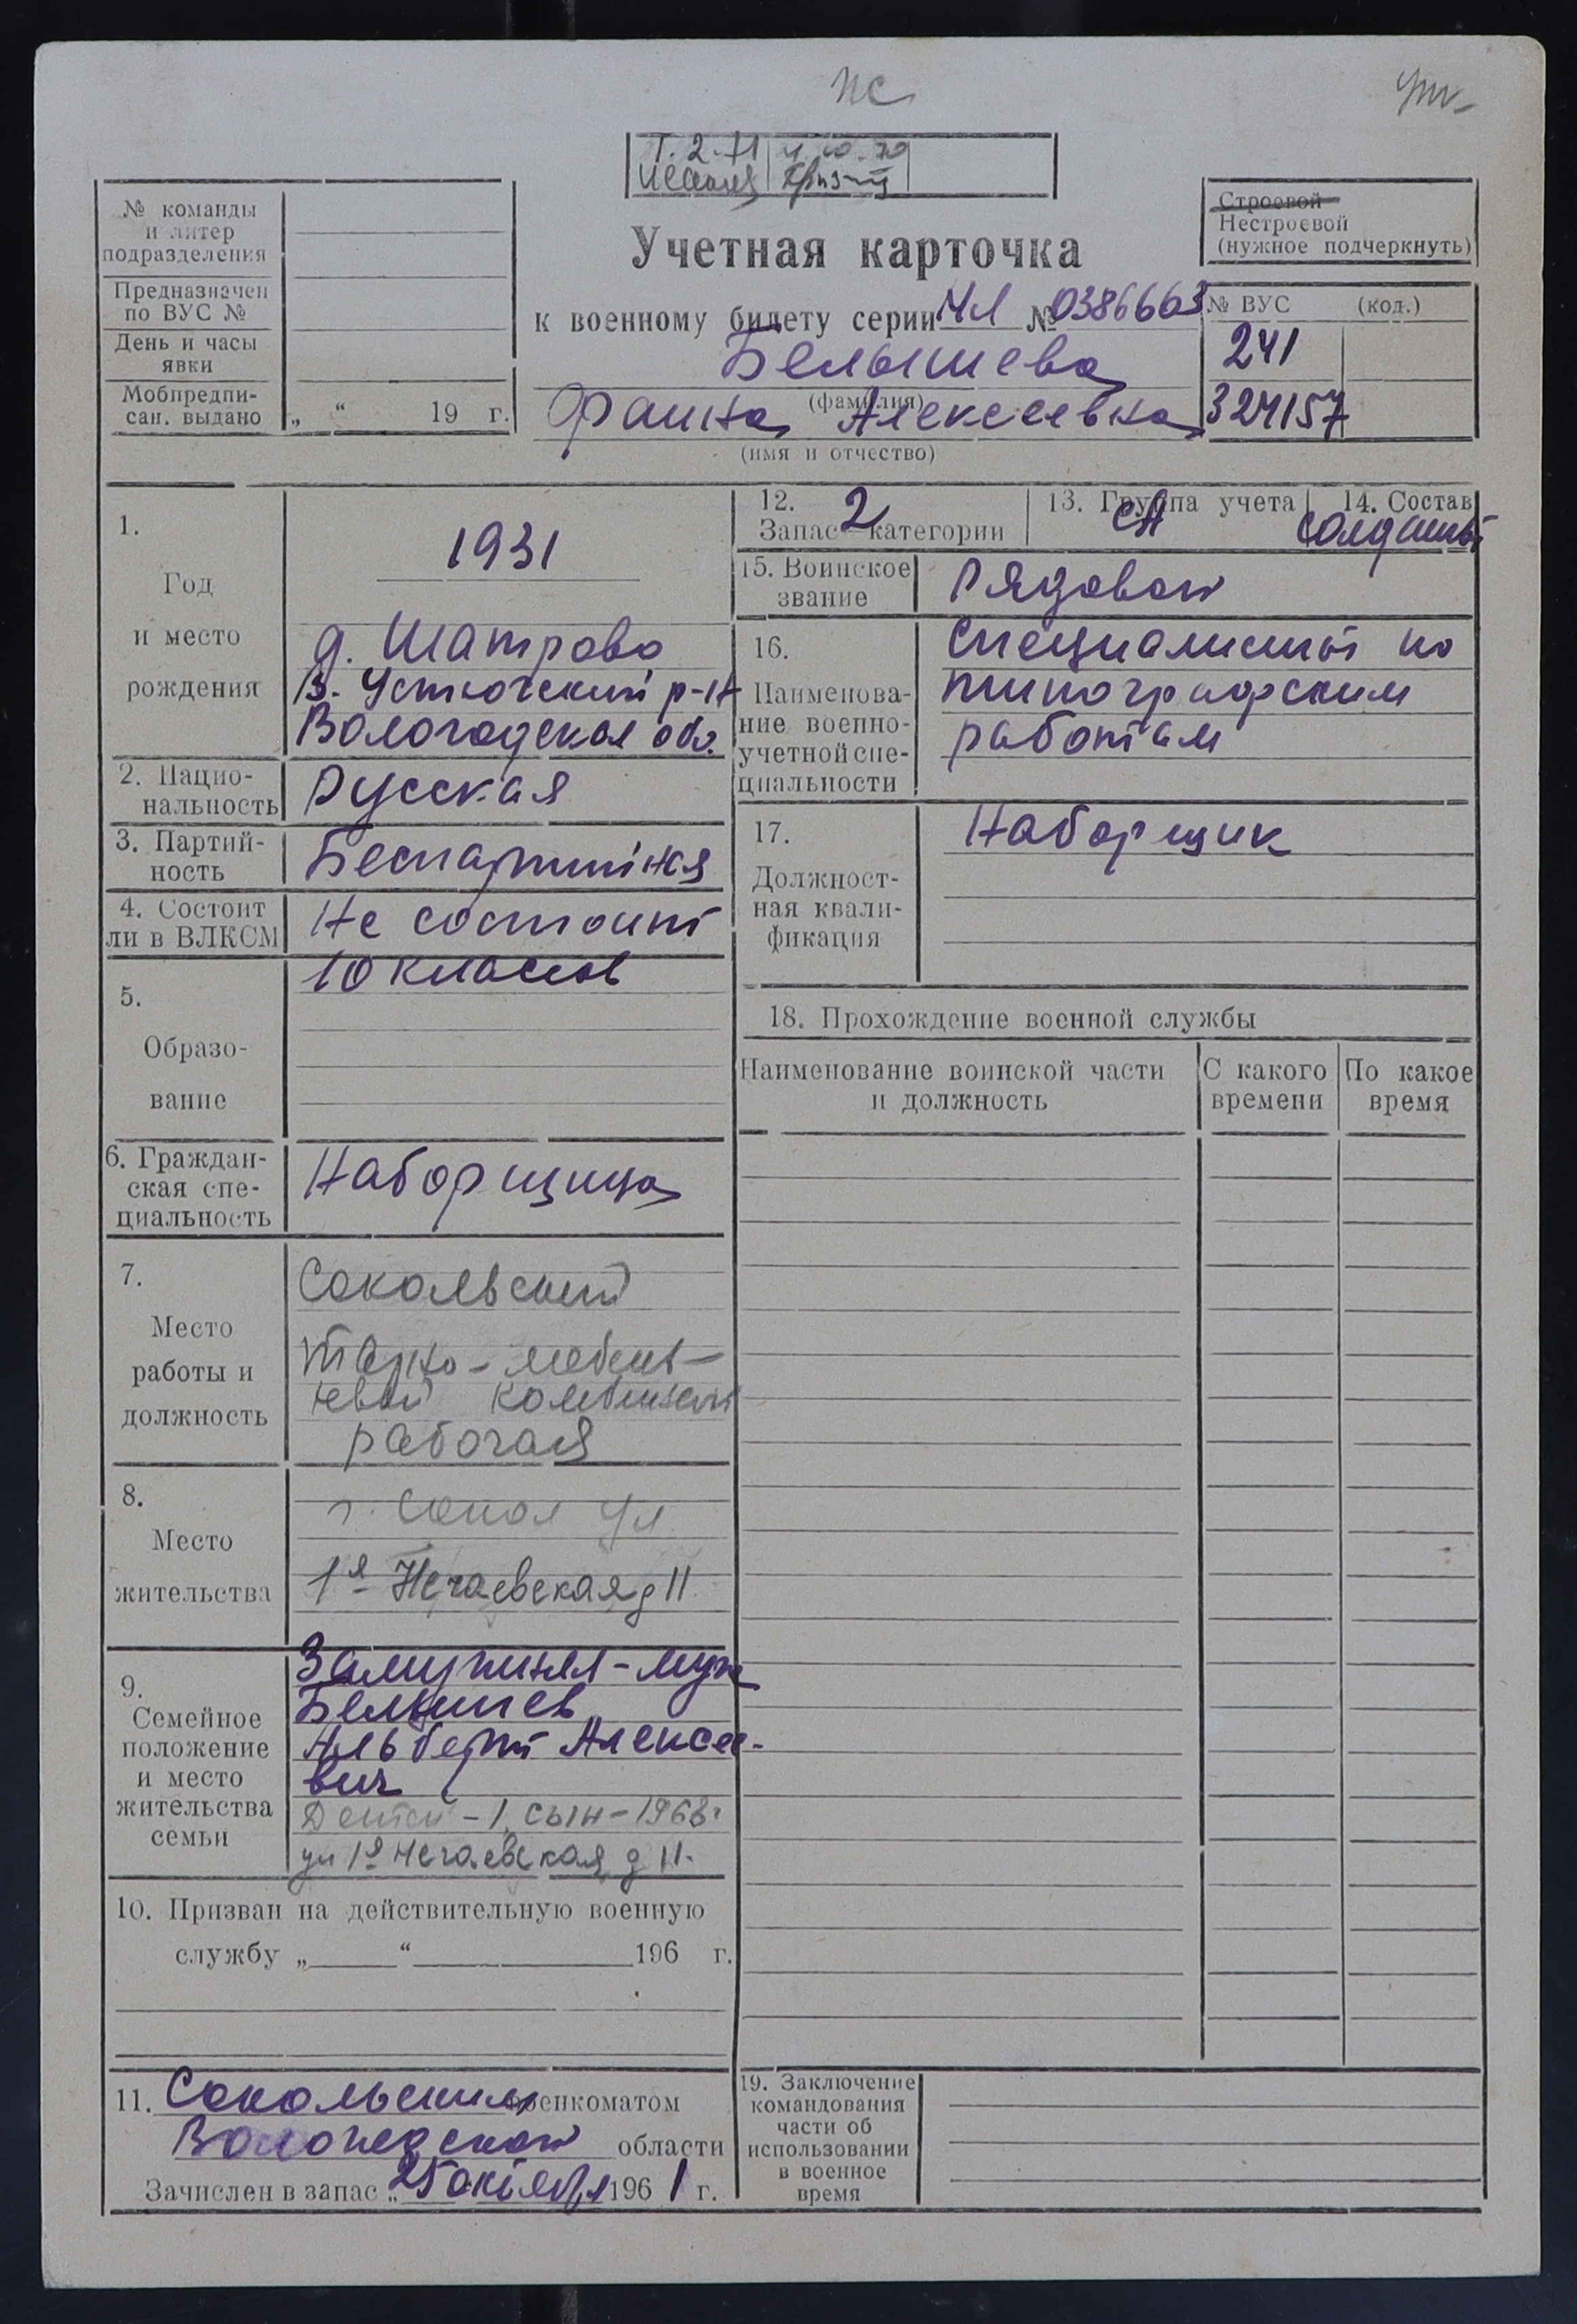 ПС
№ команды
и литер
подразделения
Предназначен
по ВУС №
День и часы
явки
Мобпредпи-
сан. выдано „ “ 19 г.
Строевой
Нестроевой
(нужное подчеркнуть)
Учетная карточка
к военному билету серии МЛ № 0386663
Белышева
(фамилия)
Фаина Алексеевна
(имя и отчество)
№ ВУС (код.)
241
324157
1.
Год
и место
рождения
1931
д. Шатрово
В. Устюгский р-н
Вологодская обл.
2. Нацио-
нальность
Русская
3. Партий-
ность
Беспартийная
4. Состоит
ли в ВЛКСМ
Не состоит
5.
Образо-
вание
10 классов
6. Граждан-
ская спе-
циальность
Наборщица
7.
Место
работы и
должность
Сокольский
тарно-мебель-
ный комбинат
рабочая
8.
Место
жительства
г. Сокол ул
1я Нечаевская д 11
9.
Семейное
положение
и место
жительства
семьи
Замужняя - муж
Белышев
Альберт Алексее-
вич
Детей - 1, сын - 1968г
ул 1я Нечаевская д 11.
10. Призван на действительную военную
службу „ “ 196 г.
11. Сокольским военкоматом
Вологодской области
Зачислен в запас „25 октября 1961 г.
12.
Запас 2 категории
13. Группа учета
СА
14. Состав
солдаты
15. Воинское
звание
Рядовой
16.
Наименова-
ние военно-
учетной спе-
циальности
Специалисты по
типографским
работам
17.
Должност-
ная квали-
фикация
Наборщик
18. Прохождение военной службы
Наименование воинской части
и должность
С какого
времени
По какое
время
19. Заключение
командования
части об
использовании
в военное
время